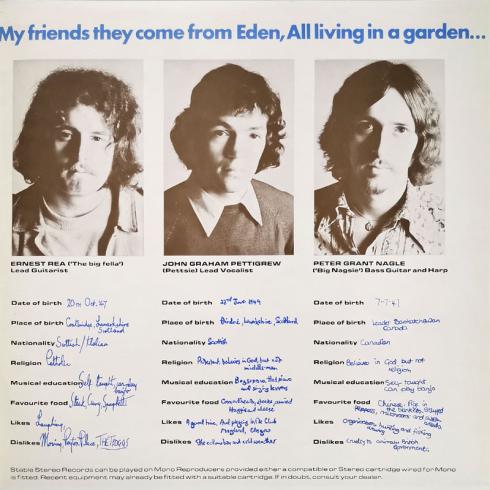 My friends they come from Eden, All living in a garden...
ERNEST REA ('The big fella')
Lead Guitarist
Date of birth 20th Oct. '47
Place of birth Coatbridge, Lanarkshire
Scotland
Nationality Scottish/Italian
Religion Catholic
Musical education Self taught, can play
banjo
Favourite food Steak, Curry, Spaghetti
Likes Laughing
Dislikes
JOHN GRAHAM PETTIGREW
(Pettsie) Lead Vocalist
Date of birth 22nd June 1949
Place of birth Lanarkshire, Scotland
Nationality Scottish
Religion Protestant, believes in God, but not
middle-men
Musical education piano
and singing lessons
Favourite food steaks
and cheese
Likes A good time, and playing
Glasgow
Dislikes and cold weather
PETER GRANT NAGLE
('Big Nagsie') Bass Guitar and Harp
Date of birth 7-7-47
Place of birth Leader Saskatchewan
Canada
Nationality Canadian
Religion Believes in God but not
religion
Musical education Self taught
can play banjo
Favourite food Chinese
Likes hunting and fishing
Dislikes Cruelty to animals, British
Government.
Stable Stereo Records can be played on Mono Reproducers provided either a compatible or Stereo cartridge wired for Mono
is fitted. Recent equipment may already be fitted with a suitable cartridge. If in doubt, consult your dealer.